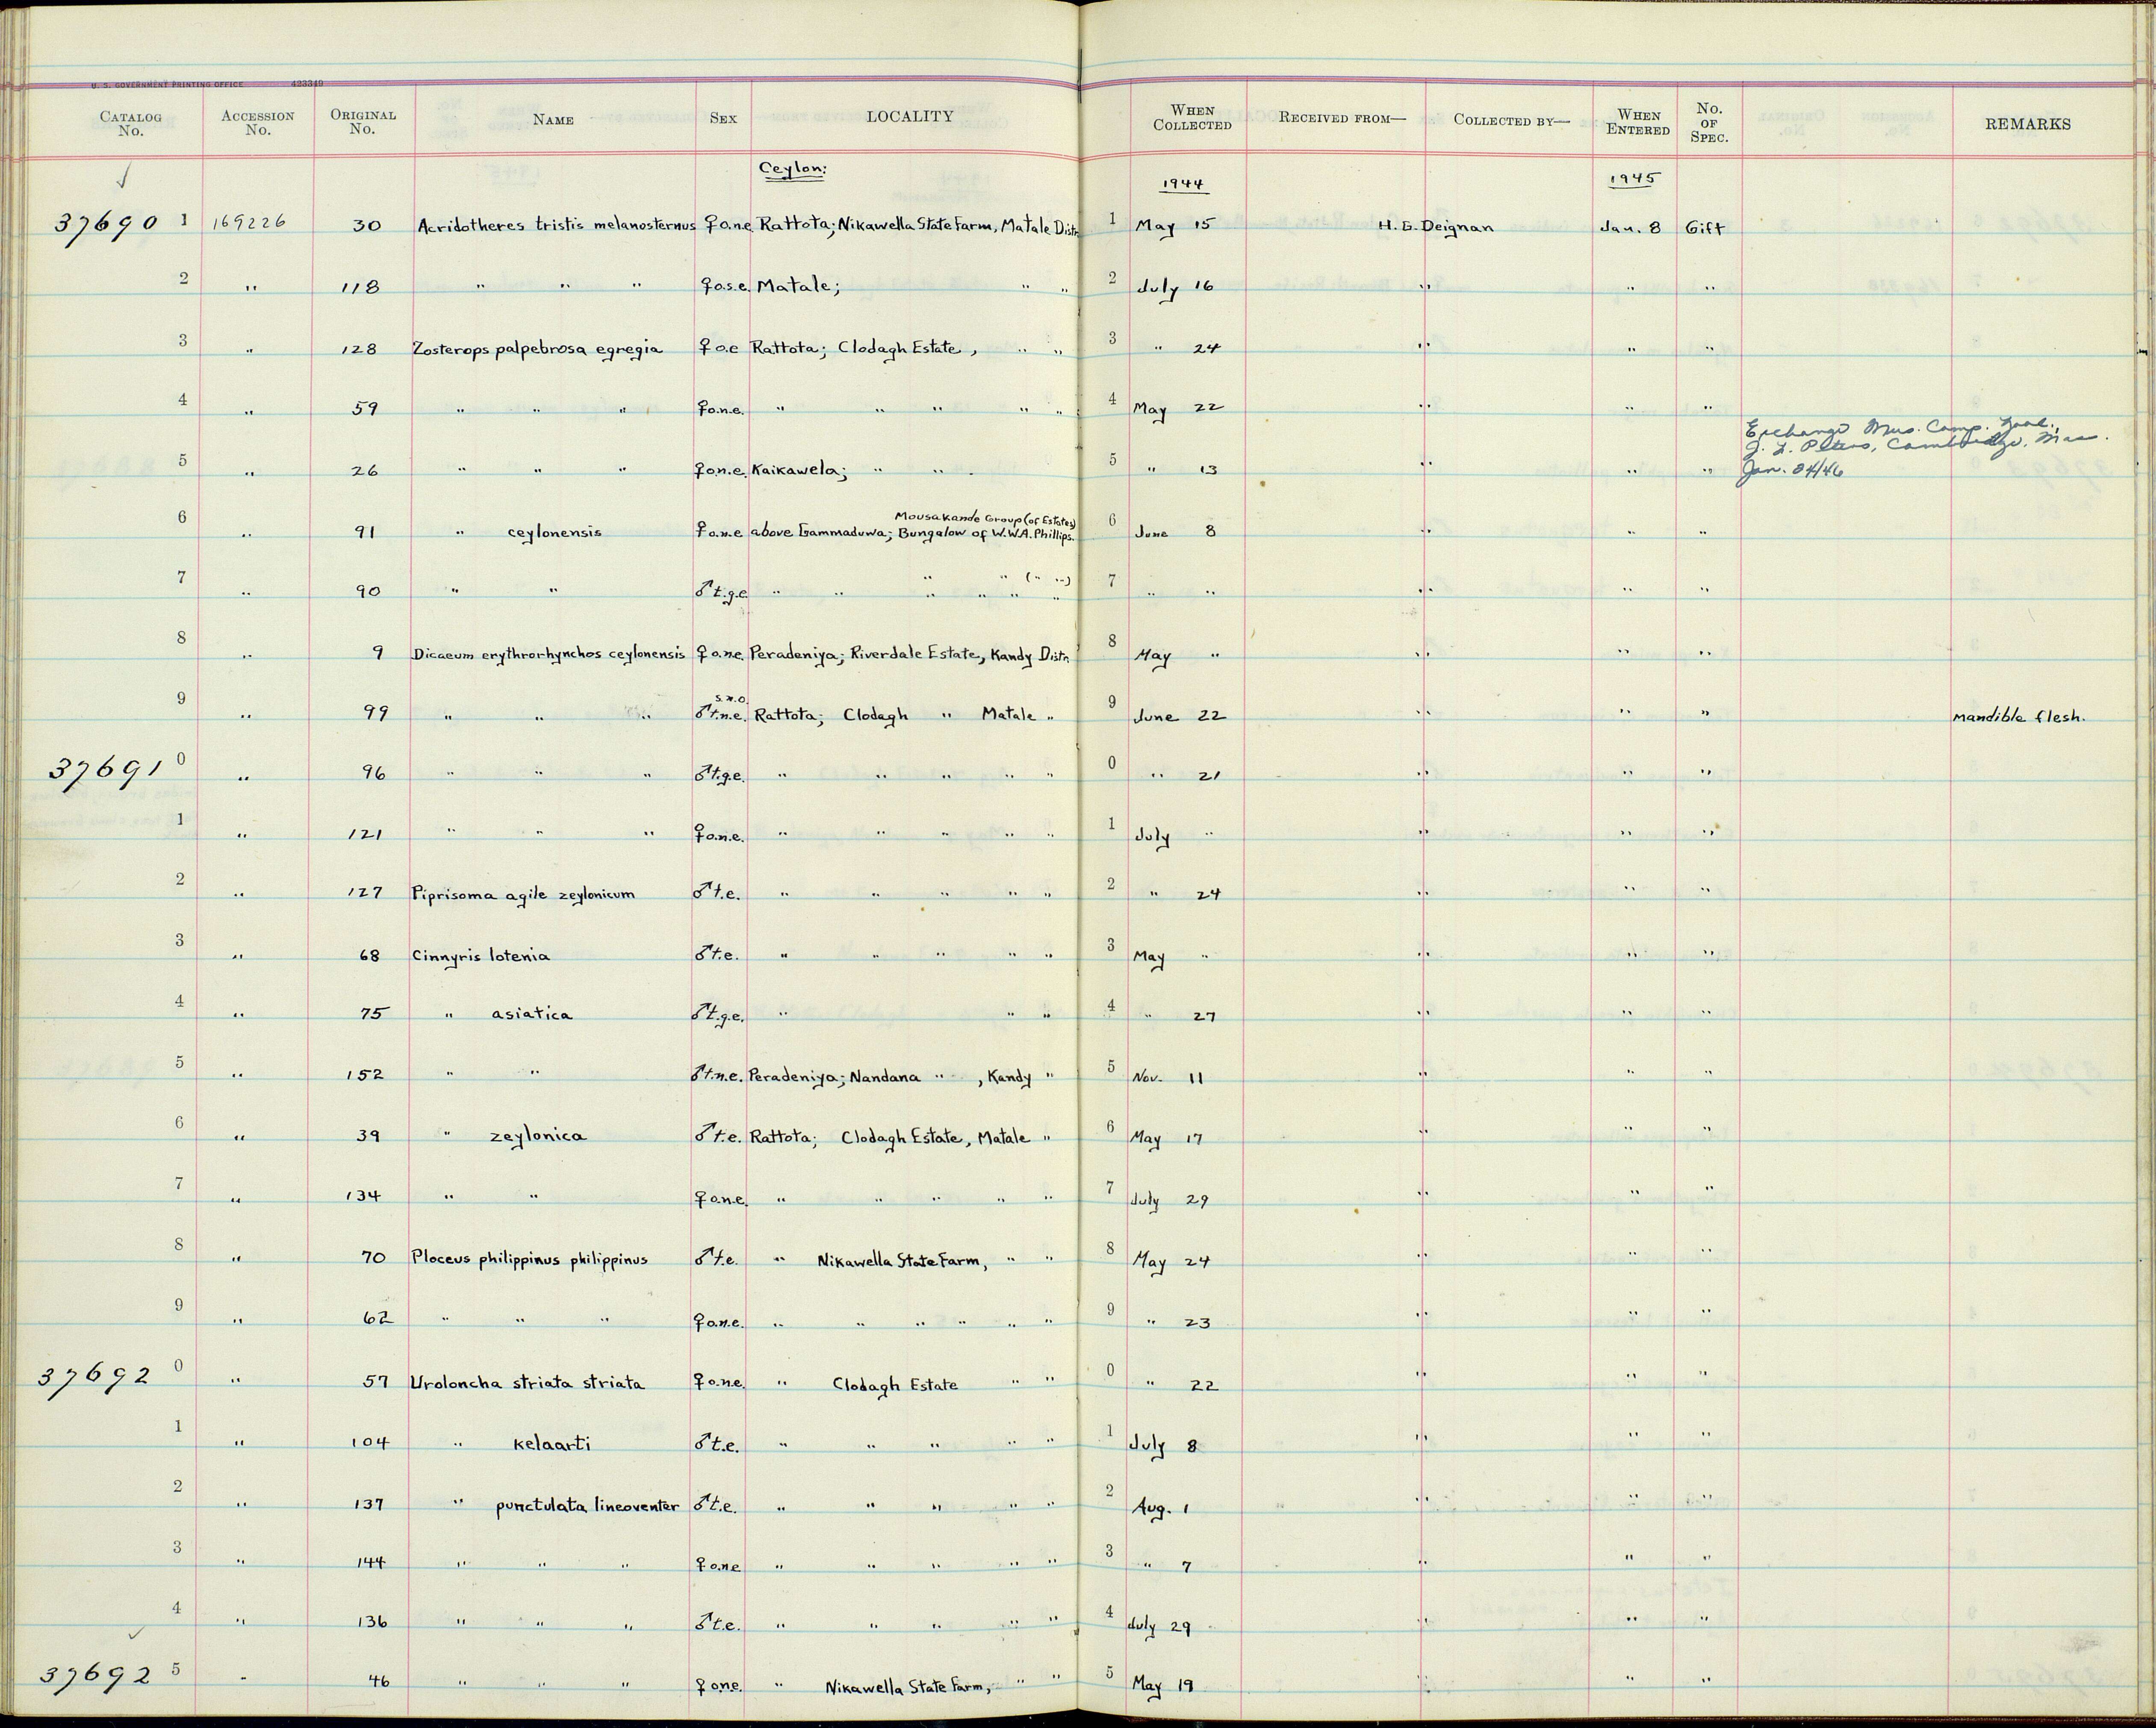 U. S. GOVERNMENT PRINTING OFFICE 423349
CATALOG No. ACCESSION No. ORIGINAL No. NAME SEX LOCALITY WHEN COLLECTED RECEIVED FROM— COLLECTED BY— WHEN ENTERED No. OF SPEC. REMARKS
Ceylon:
1944 1945
37690 1 169226 30 Acridotheres tristis melanosternus ♀ o.n.e. Rattota; Nikawella State Farm, Matale Distr. 1 May 15 H. G. Deignan Jan. 8 Gift
2 " 118 " " " ♀ o.s.e. Matale; " " 2 July 16 " " "
3 " 128 Zosterops palpebrosa egregia ♀ o.e Rattota; Clodagh Estate, " " 3 " 24 " " "
4 " 59 " " " ♀ o.n.e. " " " " " 4 May 22 " " "
Exchange Mus. Comp. Zool.,
J. L. Peters, Cambridge, Mass.
5 " 26 " " " ♀ o.n.e. Kaikawela; " " 5 " 13 " " " Jan. 24/46
Mousakande Group (of Estates)
6 " 91 " ceylonensis ♀ o.n.e above Gammaduwa; Bungalow of W.W.A. Phillips. 6 June 8 " " "
" " ( " " )
7 " 90 " " ♂ t.g.e. " " " " " " 7 " " " " "
8 " 9 Dicaeum erythrorhynchos ceylonensis ♀ o.n.e. Peradeniya; Riverdale Estate, Kandy Distr. 8 May " " " "
s.n.o.
9 " 99 " " " ♂ t.n.e. Rattota; Clodagh " Matale " 9 June 22 " " " Mandible flesh.
37691 0 " 96 " " " ♂ t.g.e. " " " " " 0 " 21 " " "
1 " 121 " " " ♀ o.n.e. " " " " " 1 July " " " "
2 " 127 Piprisoma agile zeylonicum ♂ t.e. " " " " " 2 " 24 " " "
3 " 68 Cinnyris lotenia ♂ t.e. " " " " " 3 May " " " "
4 " 75 " asiatica ♂ t.g.e. " " " 4 " 27 " " "
5 " 152 " " ♂ t.n.e. Peradeniya; Nandana " , Kandy " 5 Nov. 11 " " "
6 " 39 " zeylonica ♂ t.e. Rattota; Clodagh Estate, Matale " 6 May 17 " " "
7 " 134 " " ♀ o.n.e. " " " " " 7 July 29 " " "
8 " 70 Ploceus philippinus philippinus ♂ t.e. " Nikawella State Farm, " " 8 May 24 " " "
9 " 62 " " " ♀ o.n.e. " " " " " " 9 " 23 " " "
37692 0 " 57 Uroloncha striata striata ♀ o.n.e. " Clodagh Estate " " 0 " 22 " " "
1 " 104 " kelaarti ♂ t.e. " " " " " 1 July 8 " " "
2 " 137 " punctulata lineoventer ♂ t.e. " " " " " 2 Aug. 1 " " "
3 " 144 " " " ♀ o.n.e " " " " " 3 " 7 " " "
4 " 136 " " " ♂ t.e. " " " " " 4 July 29 " " "
37692 5 " 46 " " " ♀ o.n.e. " Nikawella State Farm, " " 5 May 19 " " "